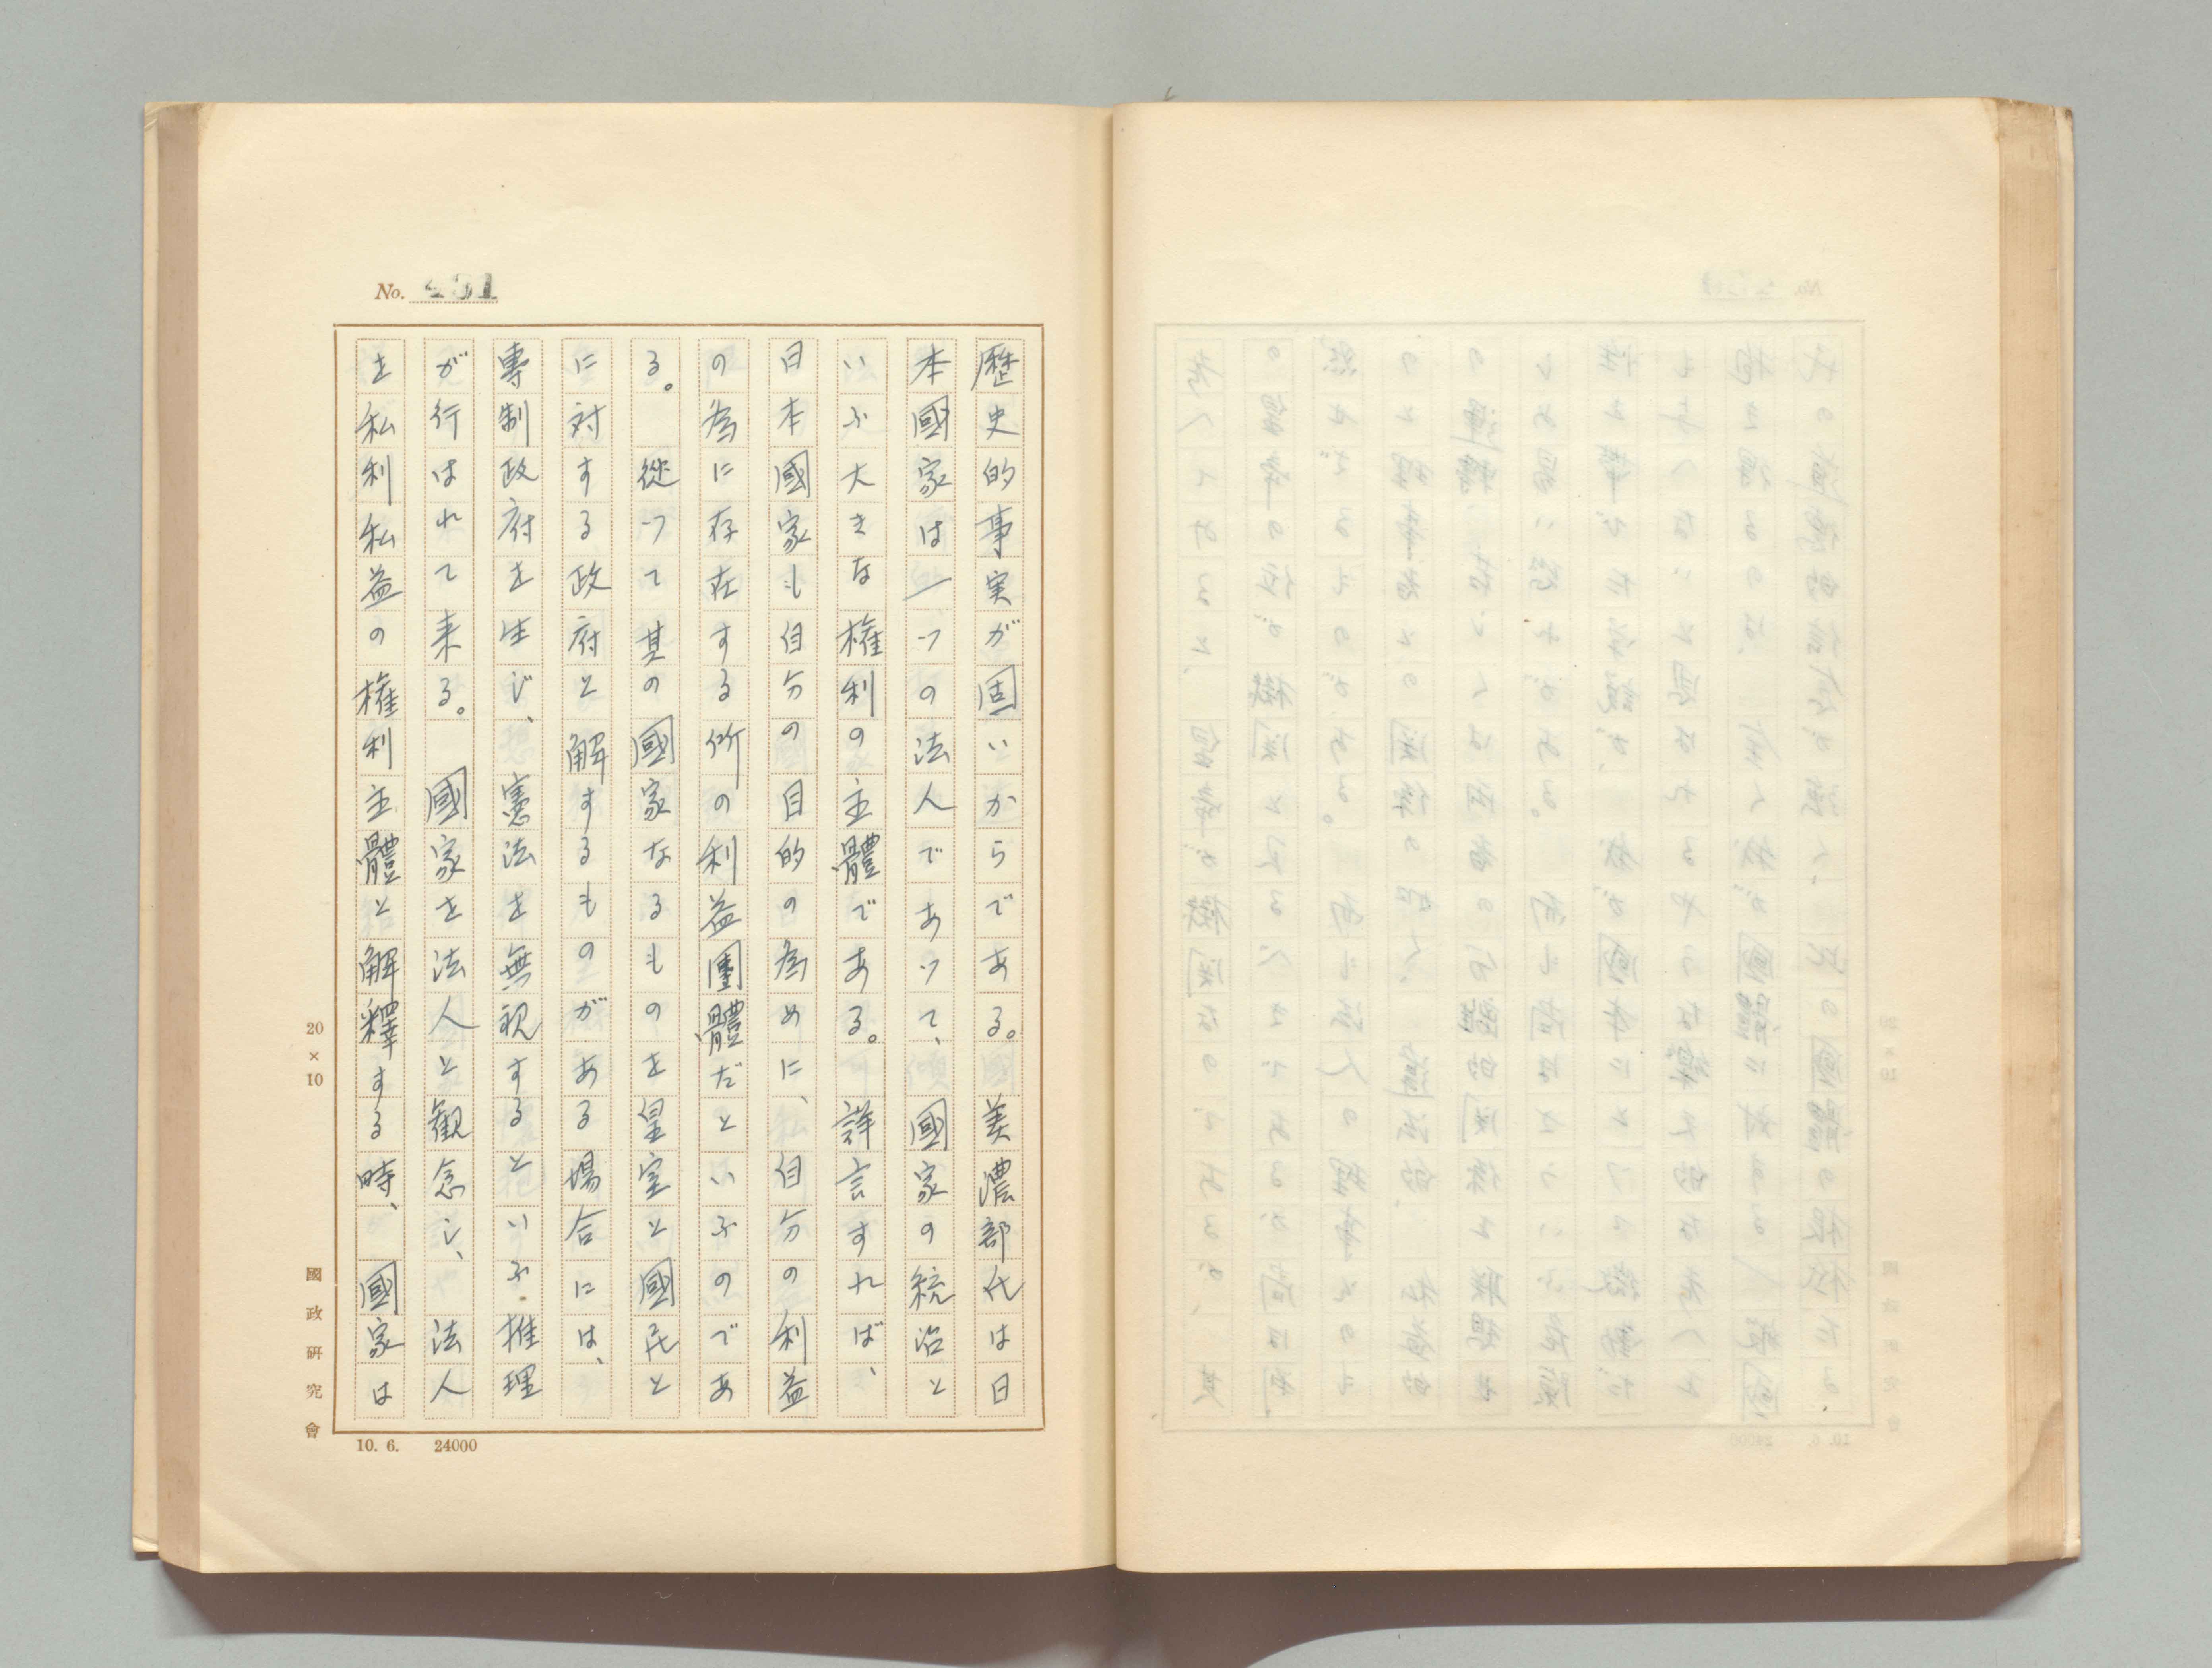 No. 451
歴史的事実が固いからである。美濃部氏は日
本國家は一つの法人であつて、國家の統治と
いふ大きな権利の主體である。詳言すれば、
日本國家も自分の目的の為めに、自分の利益
の為に存在する所の利益團體だといふのであ
る。従つて其の國家なるものを皇室と國民と
に対する政府と解するものがある場合には、
專制政府を生じ、憲法を無視するといふ推理
が行はれて来る。國家を法人と観念し、法人
を私利私益の権利主體と解釋する時、國家は
20×10
國政研究會
10. 6. 24000